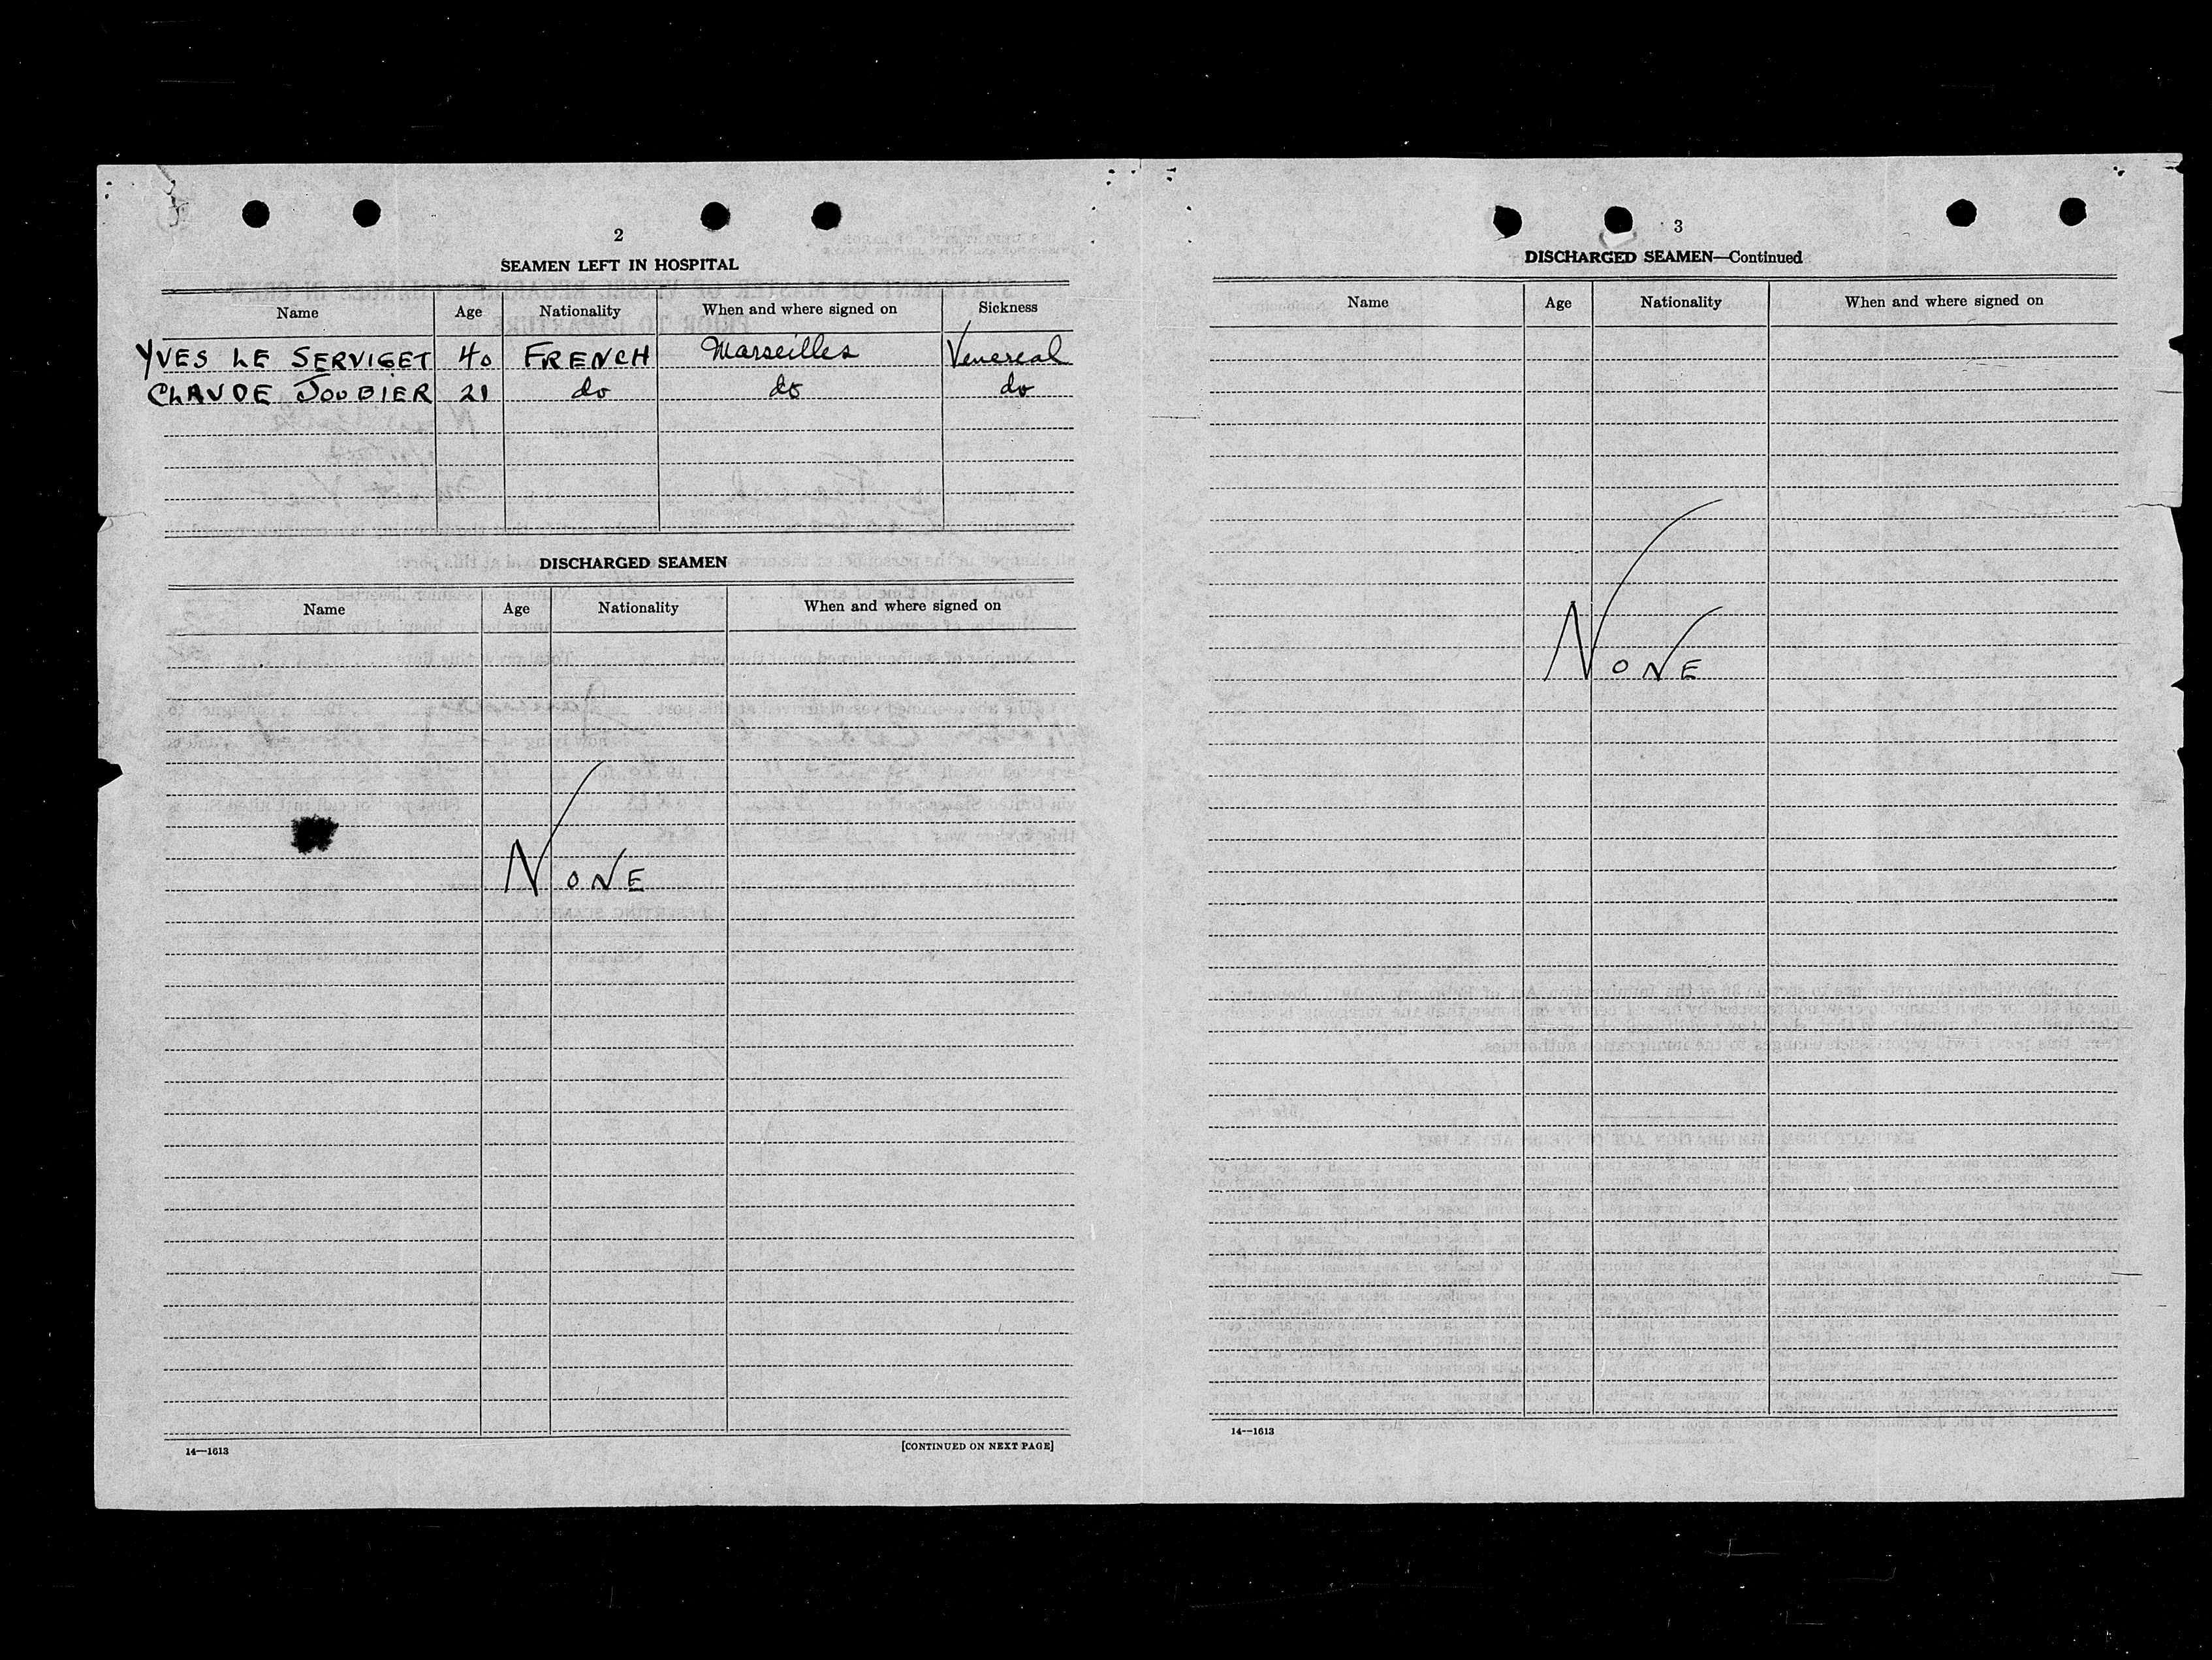 2
SEAMEN LEFT IN HOSPITAL
Name Age Nationality When and where signed on Sickness
YVES LE SERVIGET 40 FRENCH Marseilles Venereal
CLAUDE JOUBIER 21 do do do
DISCHARGED SEAMEN
Name Age Nationality When and where signed on
NONE
14—1613 [CONTINUED ON NEXT PAGE]
3
DISCHARGED SEAMEN—Continued
Name Age Nationality When and where signed on
NONE
14--1613